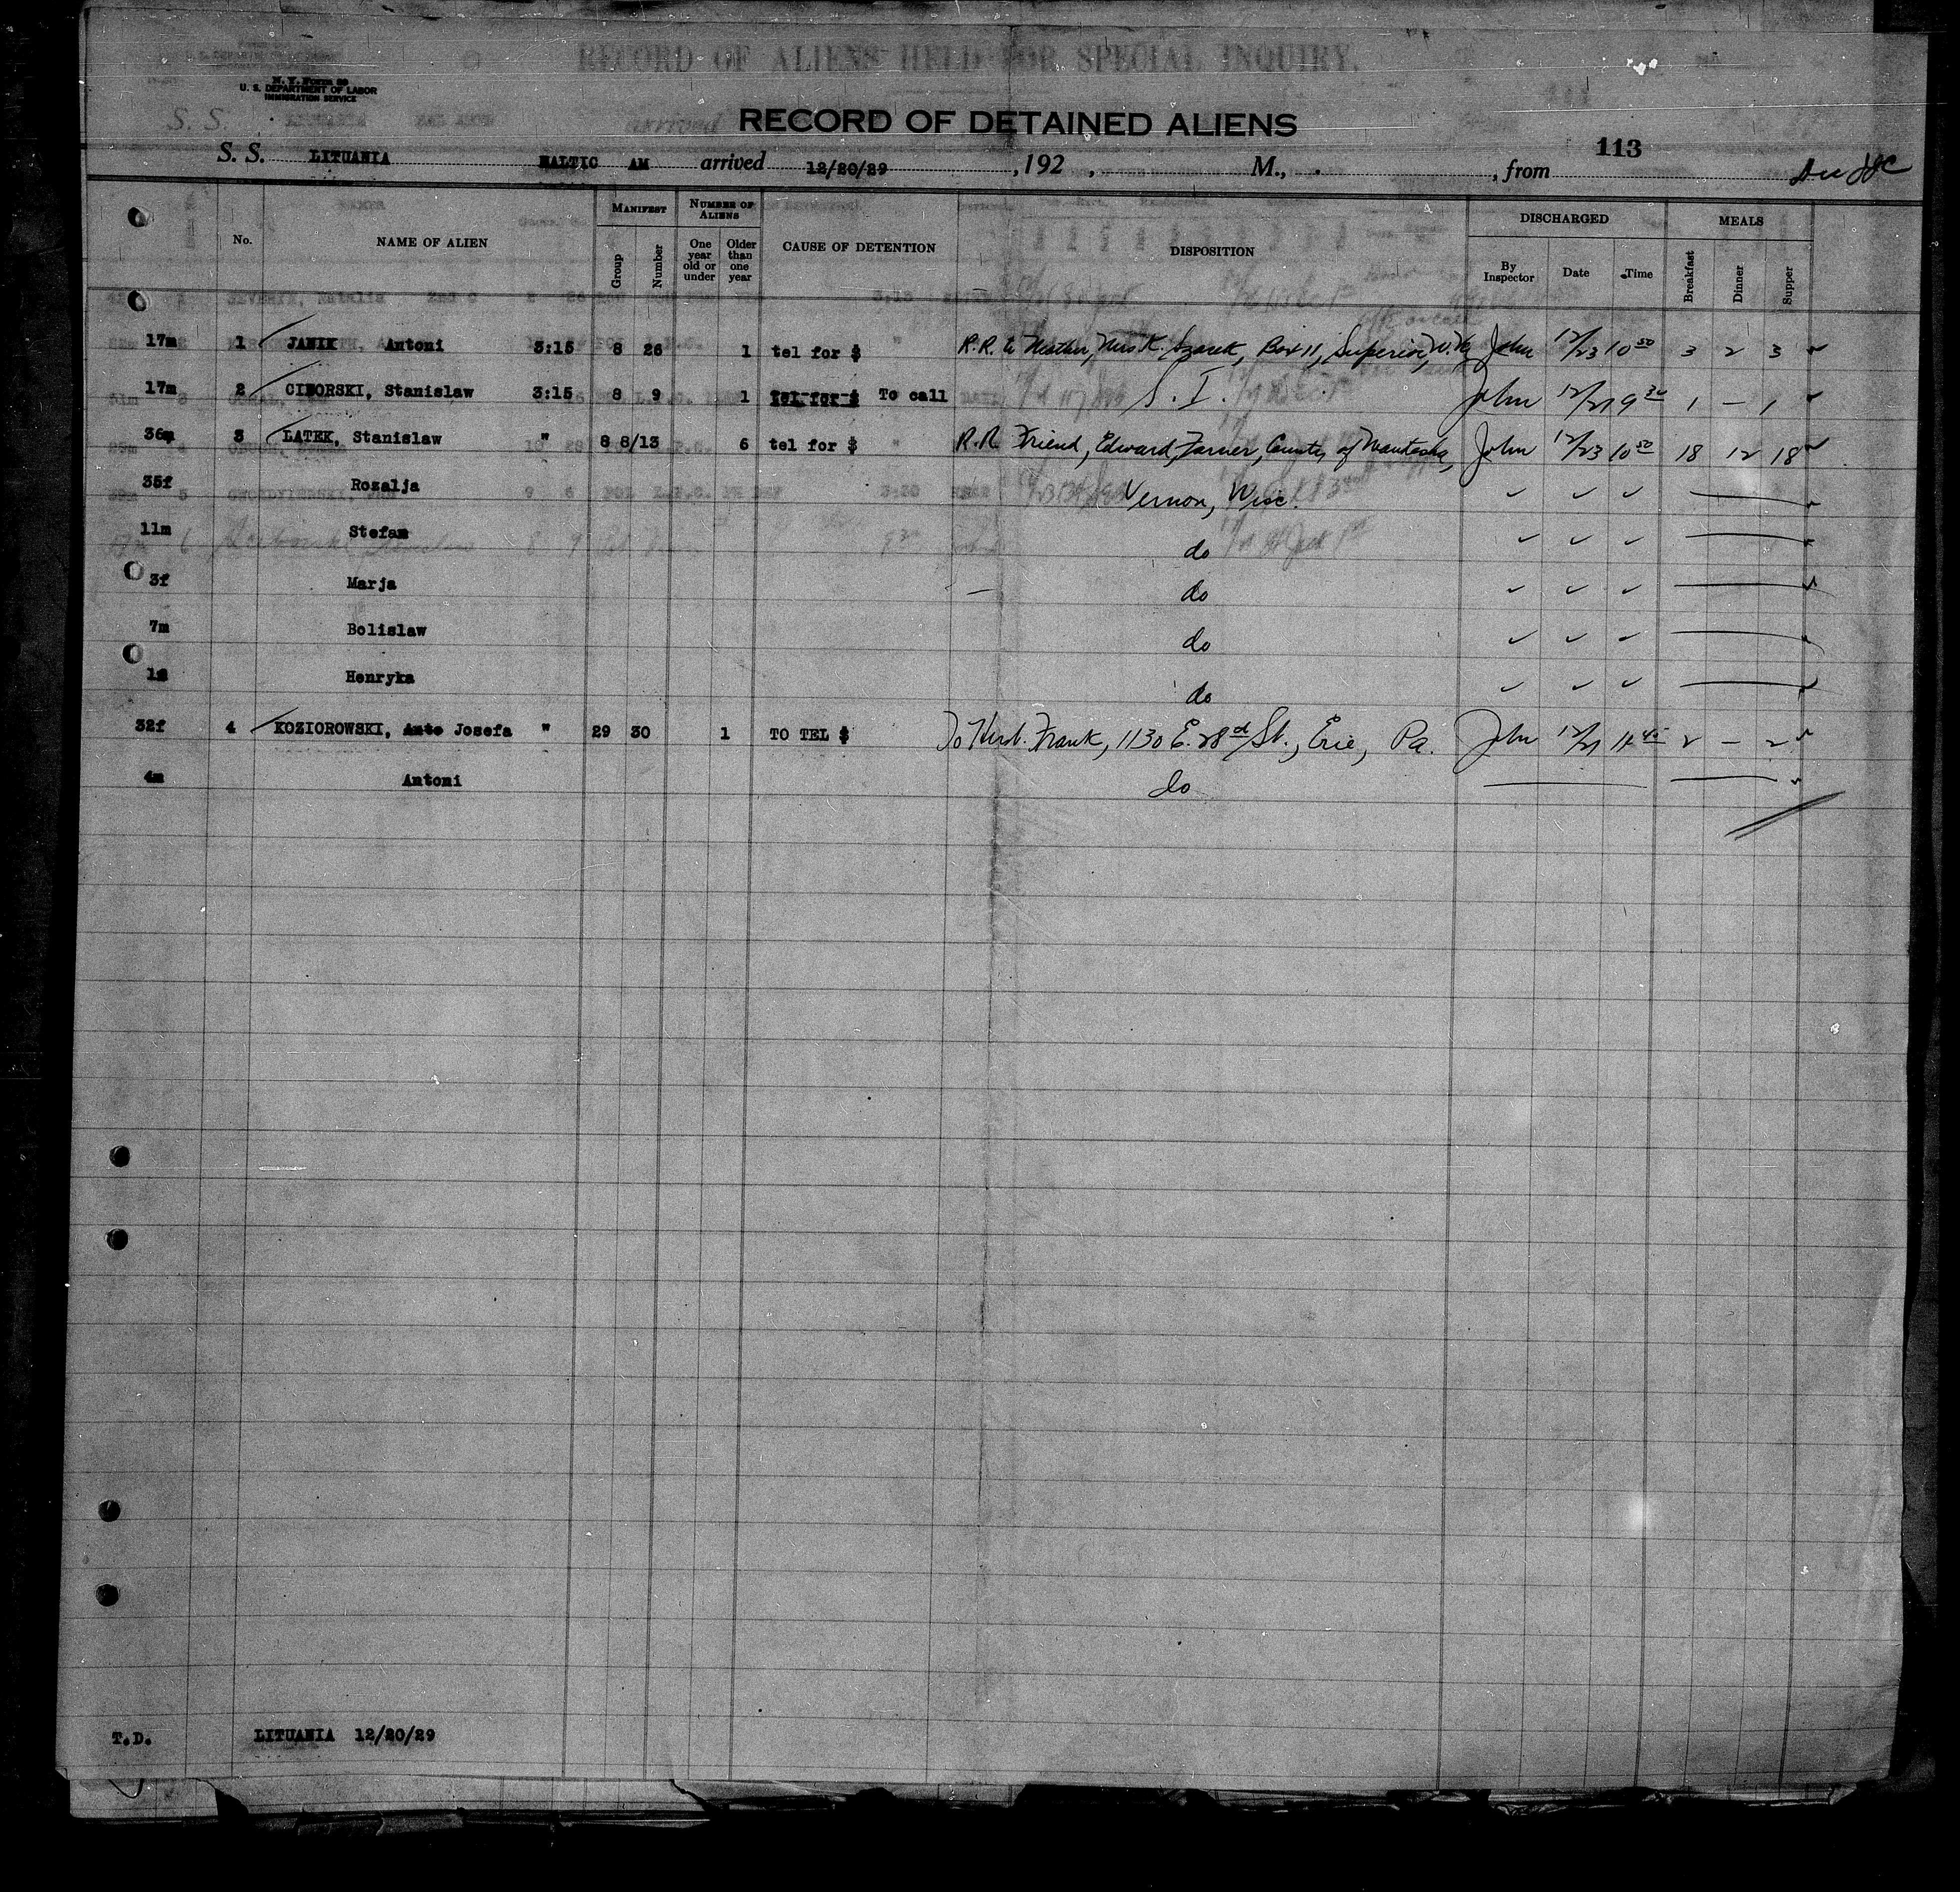 RECORD OF ALIENS HELD FOR SPECIAL INQUIRY.
N. Y. Form 89
U. S. DEPARTMENT OF LABOR
IMMIGRATION SERVICE
RECORD OF DETAINED ALIENS
113
S. S. LITUANIA BALTIC AM arrived 12/20/29 , 192 , M., , from
MANIFEST NUMBER OF ALIENS DISCHARGED MEALS
No. NAME OF ALIEN Group Number One year old or under Older than one year CAUSE OF DETENTION DISPOSITION By Inspector Date Time Breakfast Dinner Supper
17m 1 JANIK Antoni 3:15 8 26 1 tel for $ R.R. to Mother, Mrs K. Szarek, Box 11, Superior, W. John 12/23 10 50 3 2 3
17m 2 CIBORSKI, Stanislaw 3:15 8 9 1 tel for $ To call S. I. John 12/21 9 30 1 — 1
36m 3 LATEK, Stanislaw " 8 8/13 6 tel for $ R.R. Friend, Edward, Farmer, County of John 12/23 10 50 18 12 18
35f Rozalja Vernon, Wisc.
11m Stefan do
3f Marja do
7m Bolislaw do
Henryka do
32f 4 KOZIOROWSKI, Josefa " 29 30 1 TO TEL $ To Husb. Frank, 1130 E. 28 St., Erie, Pa. John 12/21 11 45 2 — 2
4m Antoni do
T.D. LITUANIA 12/20/29